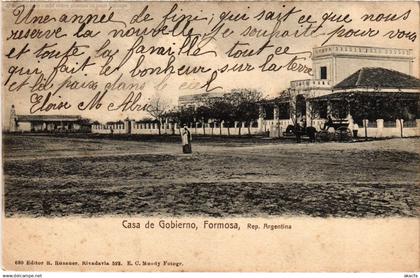 Une année de fini, qui sait ce que nous
reserve la nouvelle? Je souhaite pour vous
et toute la famille tout ce
qui fait le bonheur sur la terre
et la paix dans le
Eloïse M
Casa de Gobierno, Formosa, Rep. Argentina
680 Editor R. Rosauer, Rivadavia 592. E. C. Moody Fotogr.